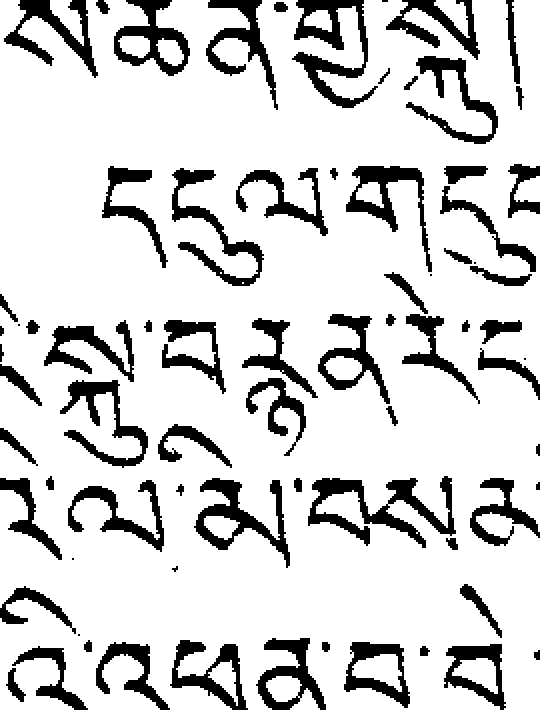 ས་ཆན་གྱ སྐུ།
དདུལ་གདུ
་སྐུ་བརྙན་རེ་ད
ར་ལ་མི་བསམ
འི་འཕན་བ་བེ